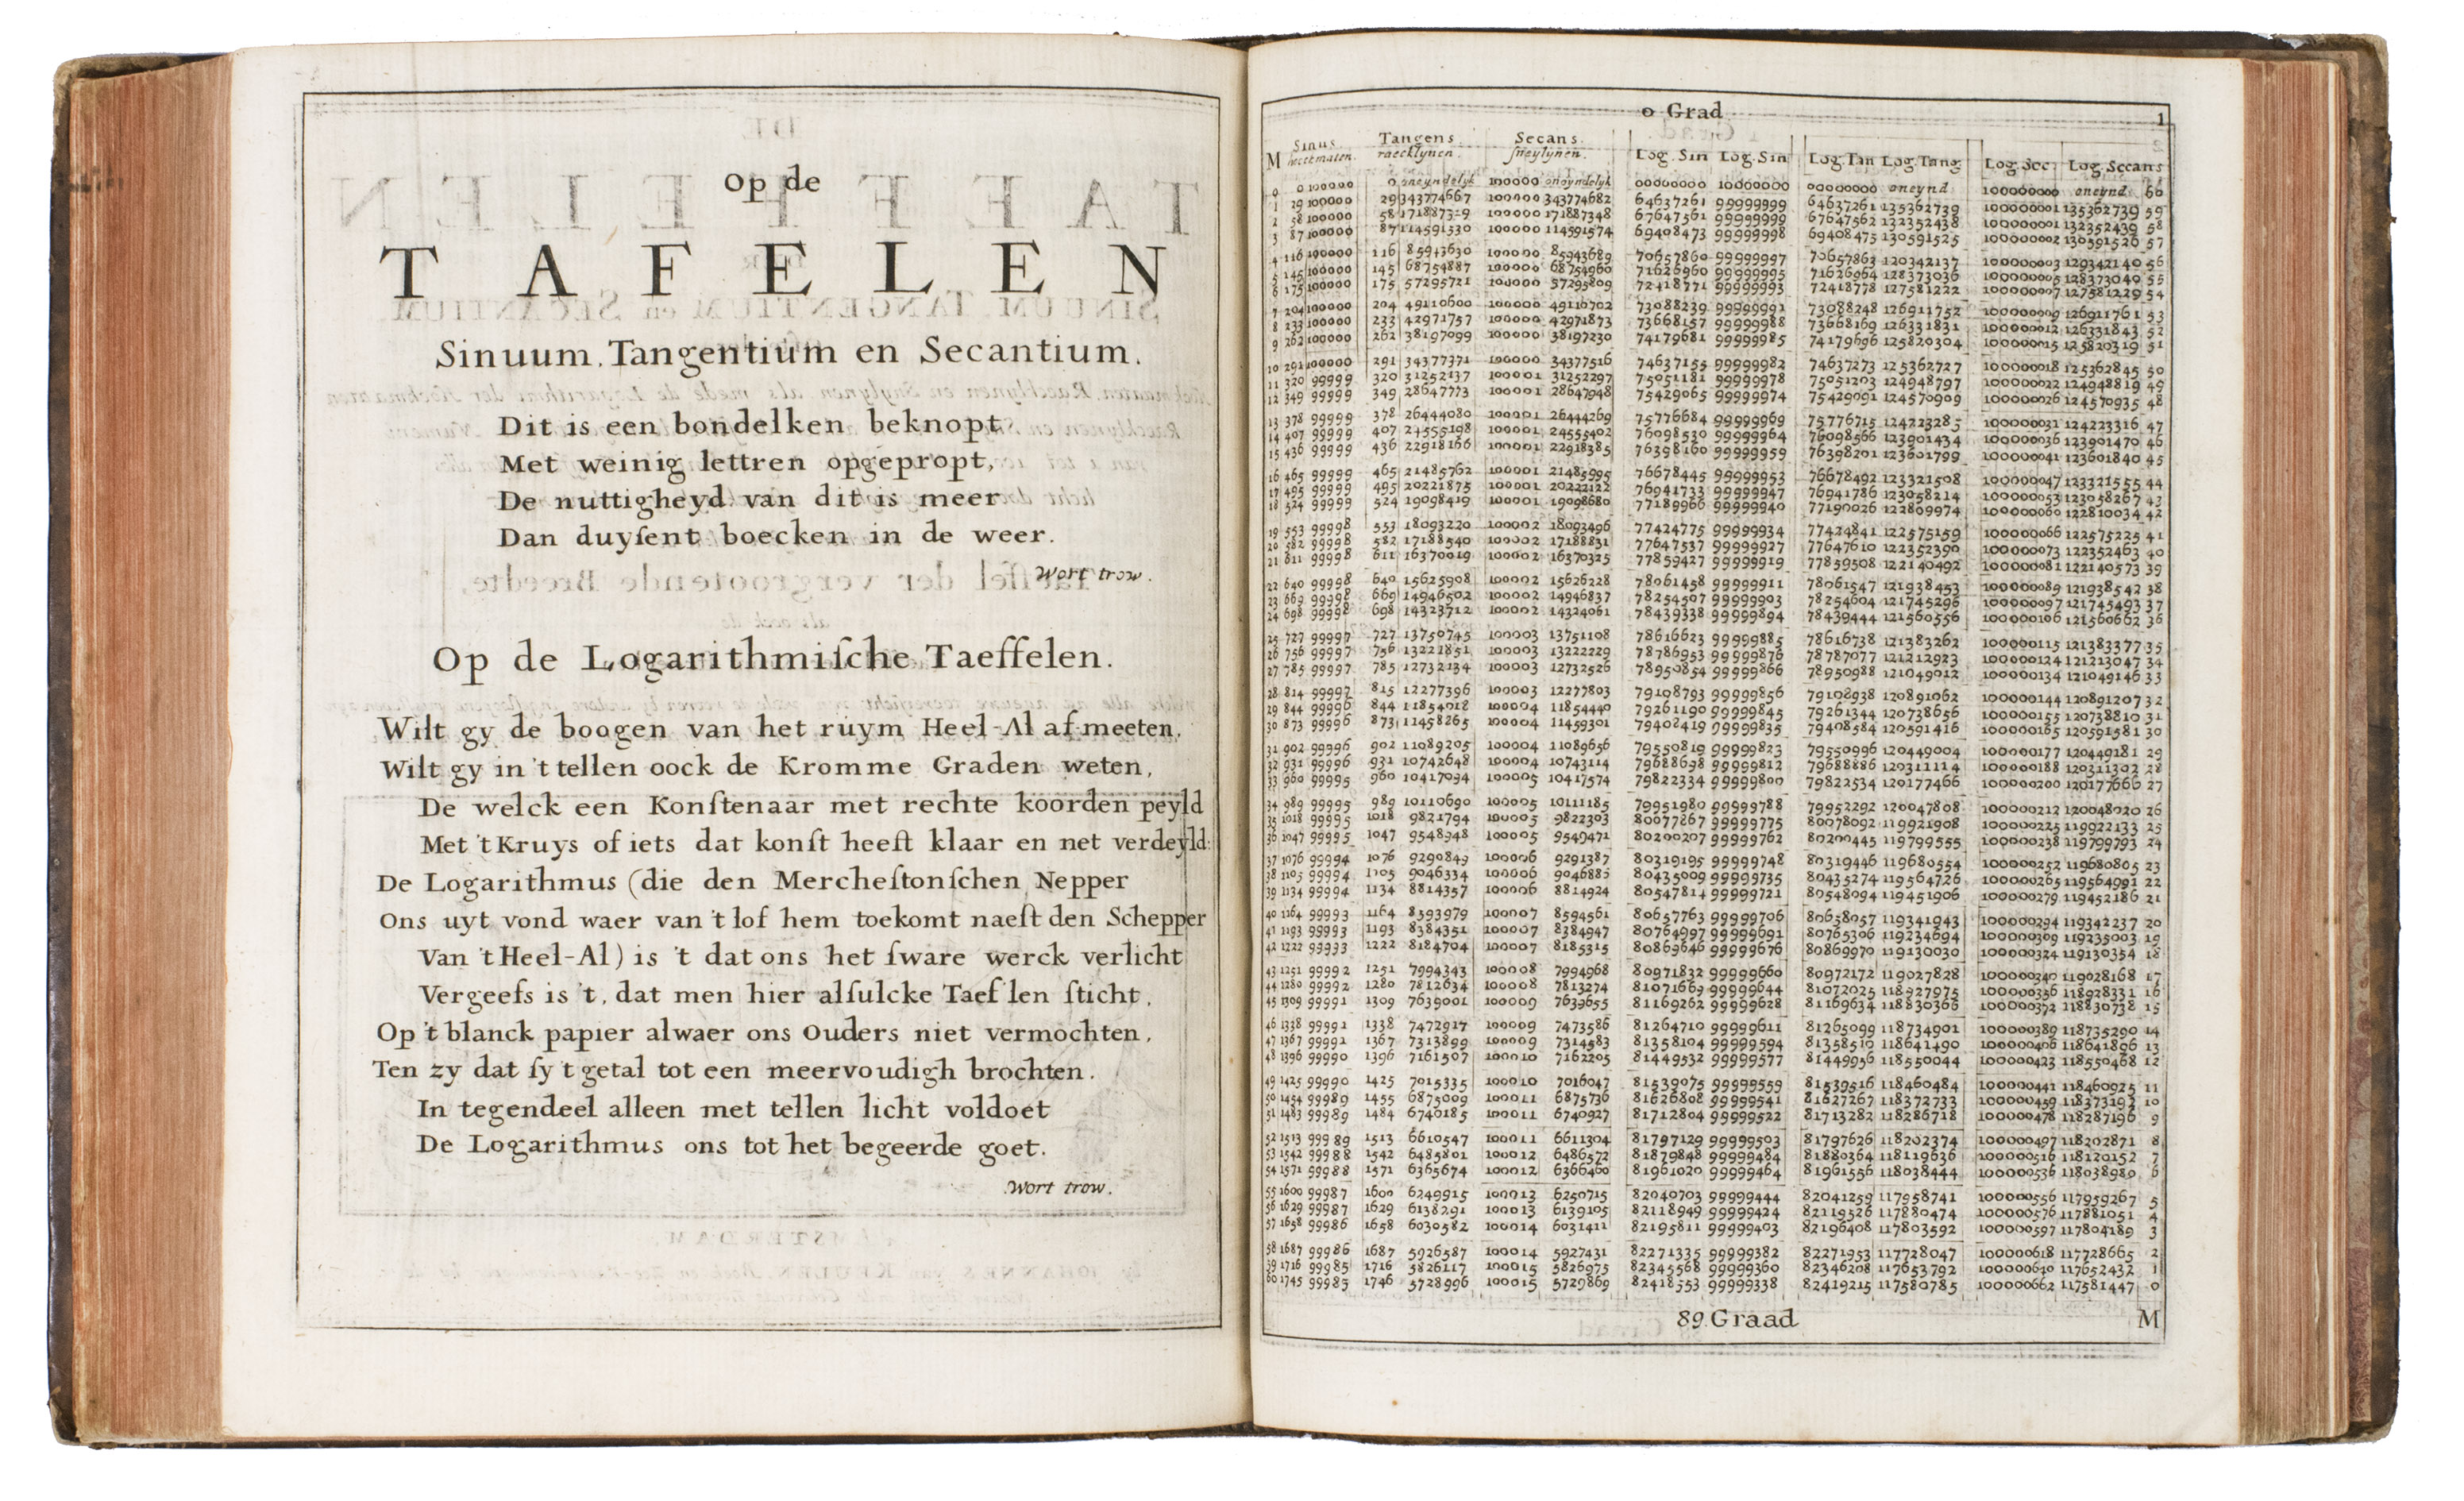 Op de
TAFELEN
Sinuum, Tangentium en Secantium.
Dit is een bondelken beknopt
Met weinig lettren opgepropt,
De nuttigheyd van dit is meer
Dan duyſent boecken in de weer.
Wort trow.
Op de Logarithmiſche Taeffelen.
Wilt gy de boogen van het ruym Heel-Al af meeten,
Wilt gy in 't tellen oock de Kromme Graden weten,
De welck een Konſtenaar met rechte koorden peyld
Met 't Kruys of iets dat konſt heeft klaar en net verdeyld:
De Logarithmus (die den Mercheſtonſchen Nepper
Ons uyt vond waer van 't lof hem toekomt naeſt den Schepper
Van 't Heel-Al) is 't dat ons het ſware werck verlicht
Vergeefs is 't, dat men hier alſulcke Taef'len ſticht,
Op 't blanck papier alwaer ons Ouders niet vermochten,
Ten zy dat ſy 't getal tot een meervoudigh brochten.
In tegendeel alleen met tellen licht voldoet
De Logarithmus ons tot het begeerde goet.
Wort trow.
0 Grad
1
M Sinus Tangens Secans Log. Sin Log. Sin Log. Tan Log. Tang Log. Sec Log. Secans
hoeckmaten. raecklynen. sneylynen.
0 0 100000 0 oneyndelyk 100000 oneyndelyk 00000000 10000000 00000000 oneynd 100000000 oneynd 60
1 29 100000 29 343774667 100000 343774682 64637261 99999999 64637261 135362739 100000001 135362739 59
2 58 100000 58 171887319 100000 171887348 67647561 99999999 67647562 132352438 100000001 132352439 58
3 87 100000 87 114591530 100000 114591574 69408473 99999998 69408475 130591525 100000002 130591526 57
4 116 100000 116 85943630 100000 85943689 70657860 99999997 70657863 129342137 100000003 129342140 56
5 145 100000 145 68754887 100000 68754960 71626960 99999995 71626964 128373036 100000005 128373040 55
6 175 100000 175 57295721 100000 57295809 72418771 99999993 72418778 127581222 100000007 127581229 54
7 204 100000 204 49110600 100000 49110702 73088239 99999991 73088248 126911752 100000009 126911761 53
8 233 100000 233 42971757 100000 42971873 73668157 99999988 73668169 126331831 100000012 126331843 52
9 262 100000 262 38197099 100000 38197230 74179681 99999985 74179696 125820304 100000015 125820319 51
10 291 100000 291 34377371 100000 34377516 74637155 99999982 74637273 125362727 100000018 125362845 50
11 320 99999 320 31252137 100001 31252297 75051181 99999978 75051203 124948797 100000022 124948819 49
12 349 99999 349 28647773 100001 28647948 75429065 99999974 75429091 124570909 100000026 124570935 48
13 378 99999 378 26444080 100001 26444269 75776684 99999969 75776715 124223285 100000031 124223316 47
14 407 99999 407 24555198 100001 24555402 76098530 99999964 76098566 123901434 100000036 123901470 46
15 436 99999 436 22918166 100001 22918385 76398160 99999959 76398201 123601799 100000041 123601840 45
16 465 99999 465 21485762 100001 21485995 76678445 99999953 76678492 123321508 100000047 123321555 44
17 495 99999 495 20221875 100001 20222122 76941733 99999947 76941786 123058214 100000053 123058267 43
18 524 99999 524 19098419 100001 19098680 77189966 99999940 77190026 122809974 100000060 122810034 42
19 553 99998 553 18093220 100002 18093496 77424775 99999934 77424841 122575159 100000066 122575225 41
20 582 99998 582 17188540 100002 17188831 77647537 99999927 77647610 122352390 100000073 122352463 40
21 611 99998 611 16370019 100002 16370325 77859427 99999919 77859508 122140492 100000081 122140573 39
22 640 99998 640 15625908 100002 15626228 78061458 99999911 78061547 121938453 100000089 121938542 38
23 669 99998 669 14946502 100002 14946837 78254507 99999903 78254604 121745296 100000097 121745493 37
24 698 99998 698 14323712 100002 14324061 78439338 99999894 78439444 121560556 100000106 121560662 36
25 727 99997 727 13750745 100003 13751108 78616623 99999885 78616738 121383262 100000115 121383377 35
26 756 99997 756 13221851 100003 13222229 78786953 99999876 78787077 121212923 100000124 121213047 34
27 785 99997 785 12732134 100003 12732526 78950854 99999866 78950988 121049012 100000134 121049146 33
28 814 99997 815 12277396 100003 12277803 79108793 99999856 79108938 120891062 100000144 120891207 32
29 844 99996 844 11854018 100004 11854440 79261190 99999845 79261344 120738656 100000155 120738810 31
30 873 99996 873 11458265 100004 11459301 79402419 99999835 79408584 120591416 100000165 120591581 30
31 902 99996 902 11089205 100004 11089656 79550819 99999823 79550996 120449004 100000177 120449181 29
32 931 99996 931 10742648 100004 10743114 79688698 99999812 79688886 120311114 100000188 120311302 28
33 960 99995 960 10417094 100005 10417574 79822334 99999800 79822534 120177466 100000200 120177666 27
34 989 99995 989 10110690 100005 10111185 79951980 99999788 79952292 120047808 100000212 120048020 26
35 1018 99995 1018 9821794 100005 9822303 80077867 99999775 80078092 119921908 100000225 119922133 25
36 1047 99995 1047 9548948 100005 9549471 80200207 99999762 80200445 119799555 100000238 119799793 24
37 1076 99994 1076 9290849 100006 9291387 80319195 99999748 80319446 119680554 100000252 119680805 23
38 1105 99994 1105 9046334 100006 9046885 80435009 99999735 80435274 119564726 100000265 119564991 22
39 1134 99994 1134 8814357 100006 8814924 80547814 99999721 80548094 119451906 100000279 119452186 21
40 1164 99993 1164 8593979 100007 8594561 80657763 99999706 80658057 119341943 100000294 119342237 20
41 1193 99993 1193 8384351 100007 8384947 80764997 99999691 80765306 119234694 100000309 119235003 19
42 1222 99993 1222 8184704 100007 8185315 80869646 99999676 80869970 119130030 100000324 119130354 18
43 1251 99992 1251 7994343 100008 7994968 80971832 99999660 80972172 119027828 100000340 119028168 17
44 1280 99992 1280 7812634 100008 7813274 81071669 99999644 81072025 118927975 100000356 118928331 16
45 1309 99991 1309 7639001 100009 7639655 81169262 99999628 81169634 118830366 100000372 118830738 15
46 1338 99991 1338 7472917 100009 7473586 81264710 99999611 81265099 118734901 100000389 118735290 14
47 1367 99991 1367 7313899 100009 7314583 81358104 99999594 81358510 118641490 100000406 118641896 13
48 1396 99990 1396 7161507 100010 7162205 81449532 99999577 81449956 118550044 100000423 118550468 12
49 1425 99990 1425 7015335 100010 7016047 81539075 99999559 81539516 118460484 100000441 118460925 11
50 1454 99989 1455 6875009 100011 6875736 81626808 99999541 81627267 118372733 100000459 118373192 10
51 1483 99989 1484 6740185 100011 6740927 81712804 99999522 81713282 118286718 100000478 118287196 9
52 1513 99989 1513 6610547 100011 6611304 81797129 99999503 81797626 118202374 100000497 118202871 8
53 1542 99988 1542 6485801 100012 6486572 81879848 99999484 81880364 118119636 100000516 118120152 7
54 1571 99988 1571 6365674 100012 6366460 81961020 99999464 81961556 118038444 100000536 118038980 6
55 1600 99987 1600 6249915 100013 6250715 82040703 99999444 82041259 117958741 100000556 117959267 5
56 1629 99987 1629 6138291 100013 6139105 82118949 99999424 82119526 117880474 100000576 117881051 4
57 1658 99986 1658 6030582 100014 6031411 82195811 99999403 82196408 117803592 100000597 117804189 3
58 1687 99986 1687 5926587 100014 5927431 82271335 99999382 82271953 117728047 100000618 117728665 2
59 1716 99985 1716 5826117 100015 5826975 82345568 99999360 82346208 117653792 100000640 117652432 1
60 1745 99985 1746 5728996 100015 5729869 82418553 99999338 82419215 117580785 100000662 117581447 0
89 Graad M